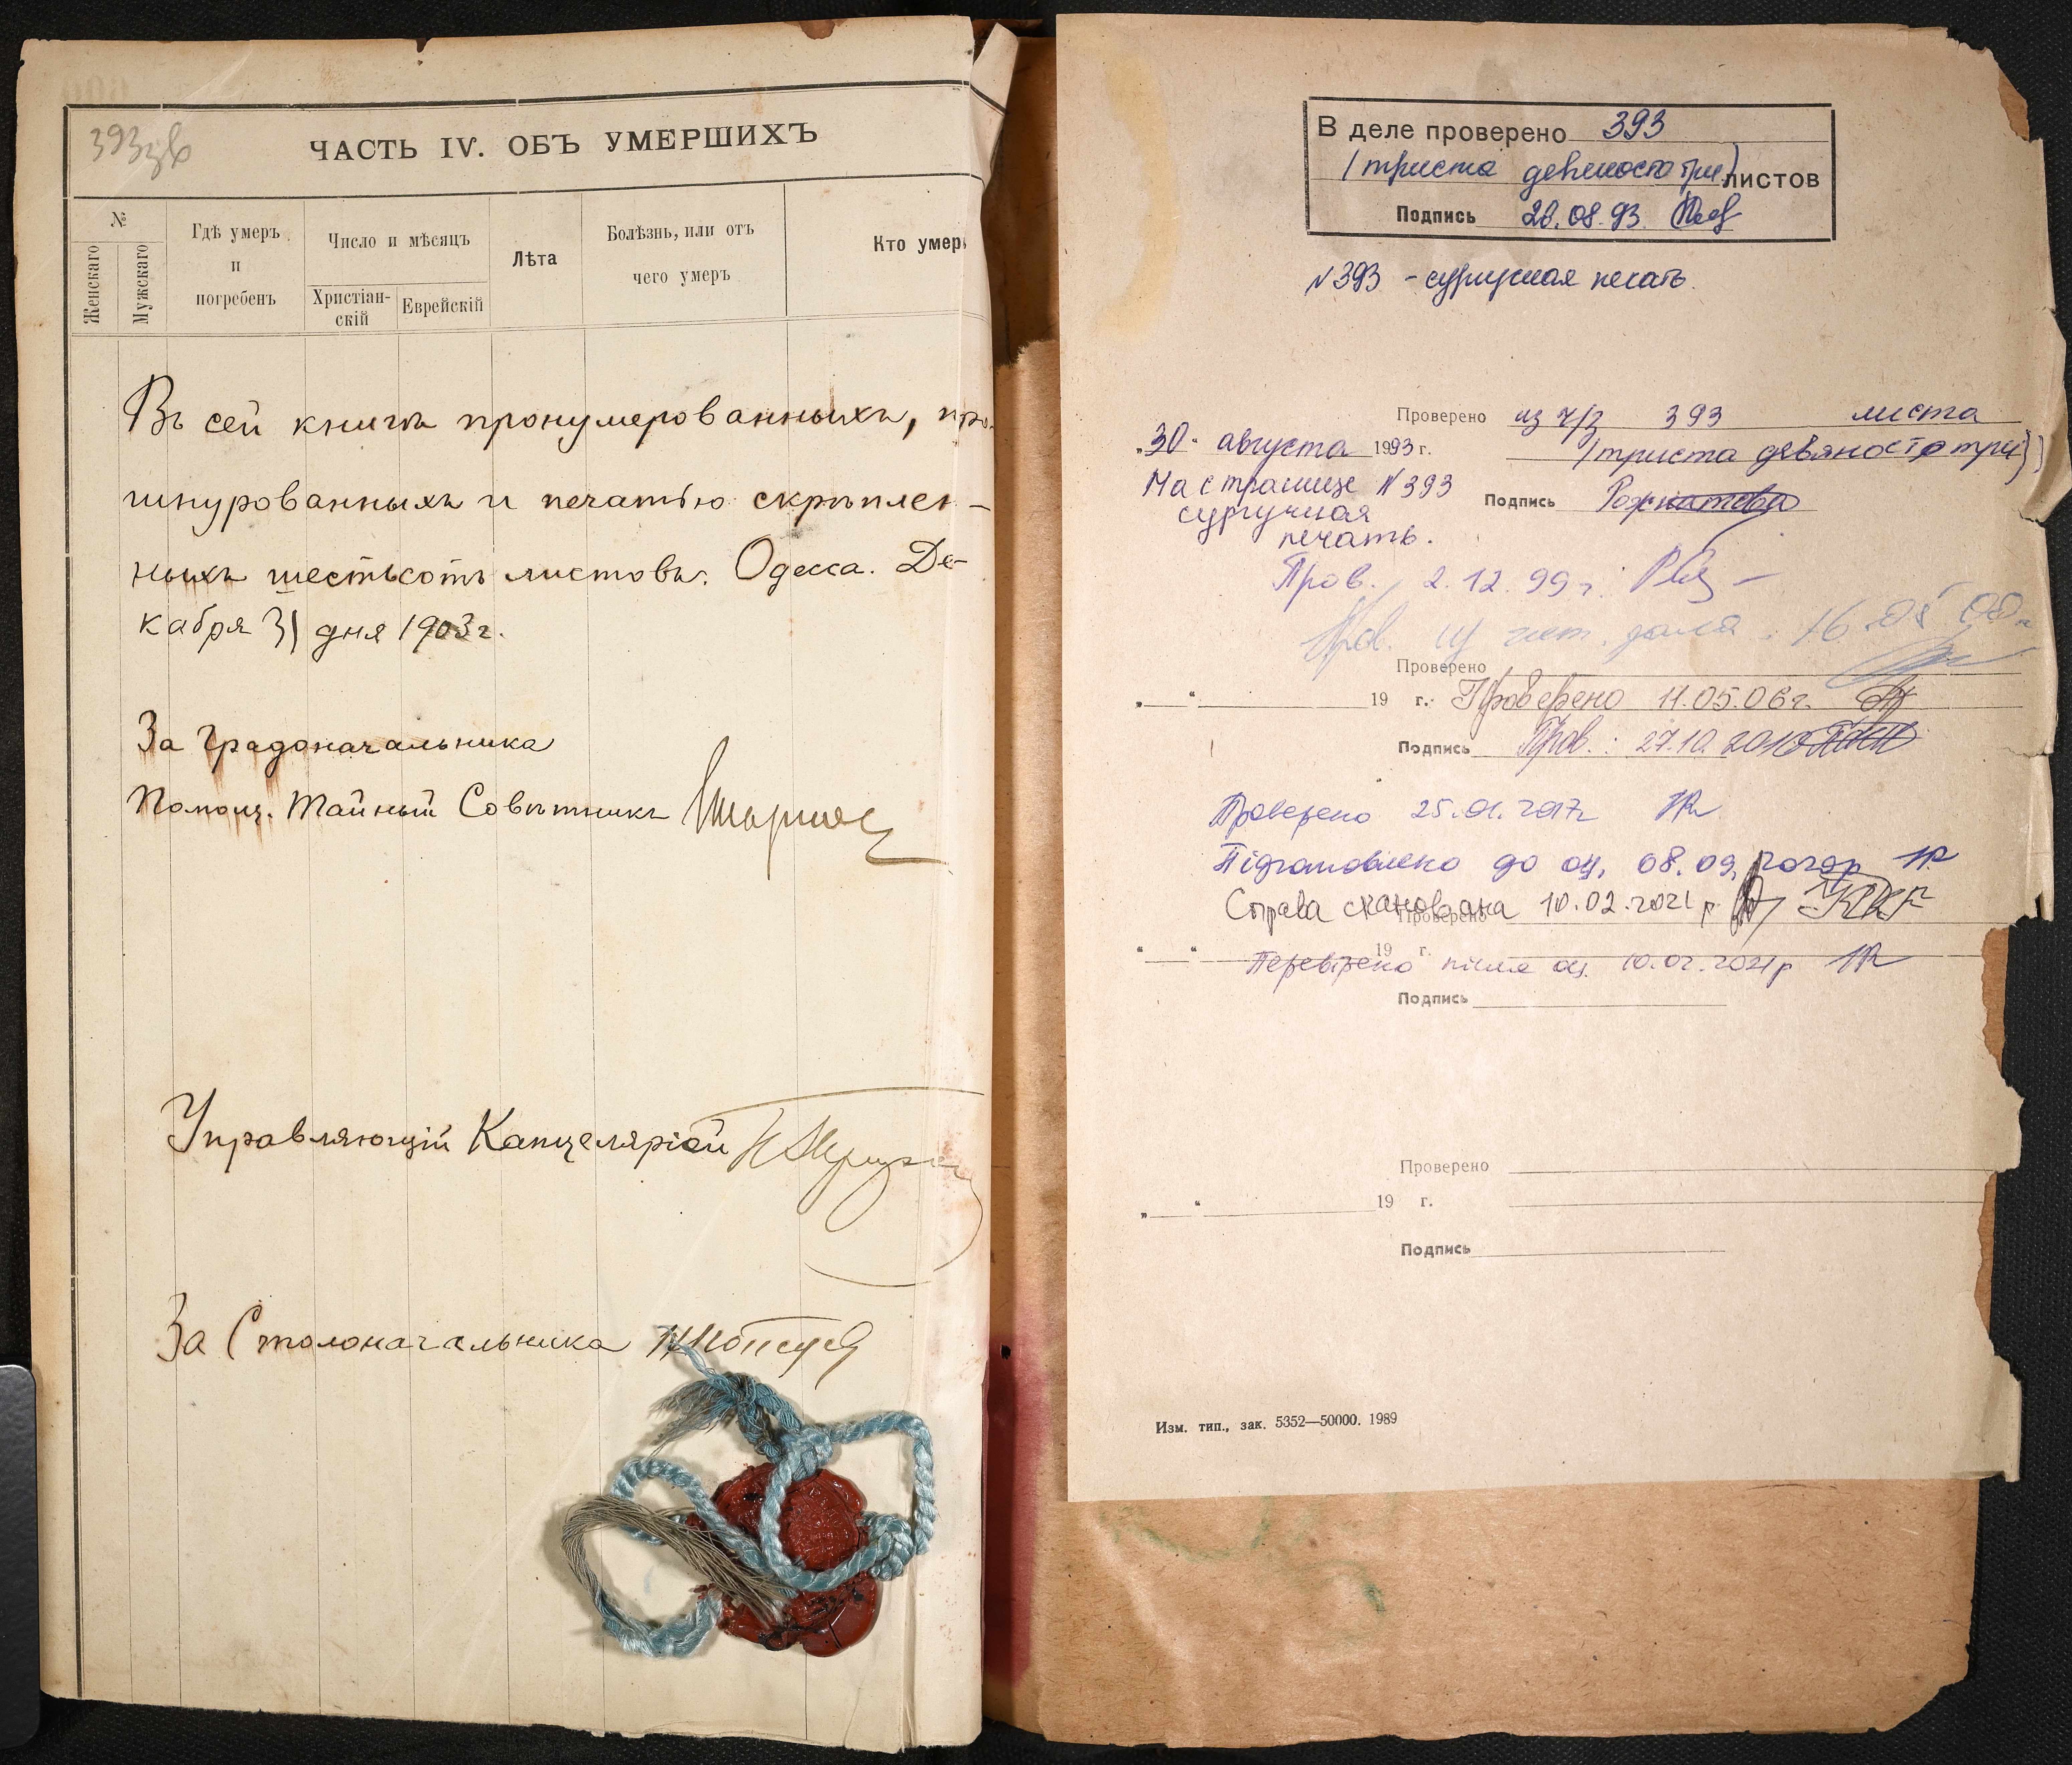 393зв
ЧАСТЬ IV. ОБЪ УМЕРШИХЪ
№
Женскаго
Мужскаго
Гдѣ умеръ
и
погребенъ
Число и мѣсяцъ
Христіан-
скій
Еврейскій
Лѣта
Болѣзнь, или отъ
чего умеръ
Кто умер
Въ сей книгѣ пронумерованныхъ, про-
шнурованныхъ и печатью скрѣплен-
ныхъ шестьсотъ листовъ. Одесса. Де-
кабря 31 дня 1903 г.
За Градоначальника
Помощ. Тайный Совѣтникъ
Управляющій Канцеляріей
За Столоначальника
В деле проверено 393
(триста девяносто три) листов
Подпись 28.08.93.
№393 - сургучная печать.
Проверено из ч/з 393 листа
"30" августа 1993 г. (триста девяносто три)
На странице №393
сургучная
печать.
Подпись
Пров. 2.12.99 г.
Пров. из чит. зала. 16.05.00
Проверено
„ “ 19 г. Проверено 11.05.06г.
Подпись Пров.: 27.10.2010
Проверено 25.01.2017г
Підготовлено до оц. 08.09.2020р
Справа сканована 10.02.2021 р.
Проверено
“ “ 19 г.
Перевірено після оц. 10.02.2021р
Подпись
Проверено
„ “ 19 г.
Подпись
Изм. тип., зак. 5352—50000. 1989